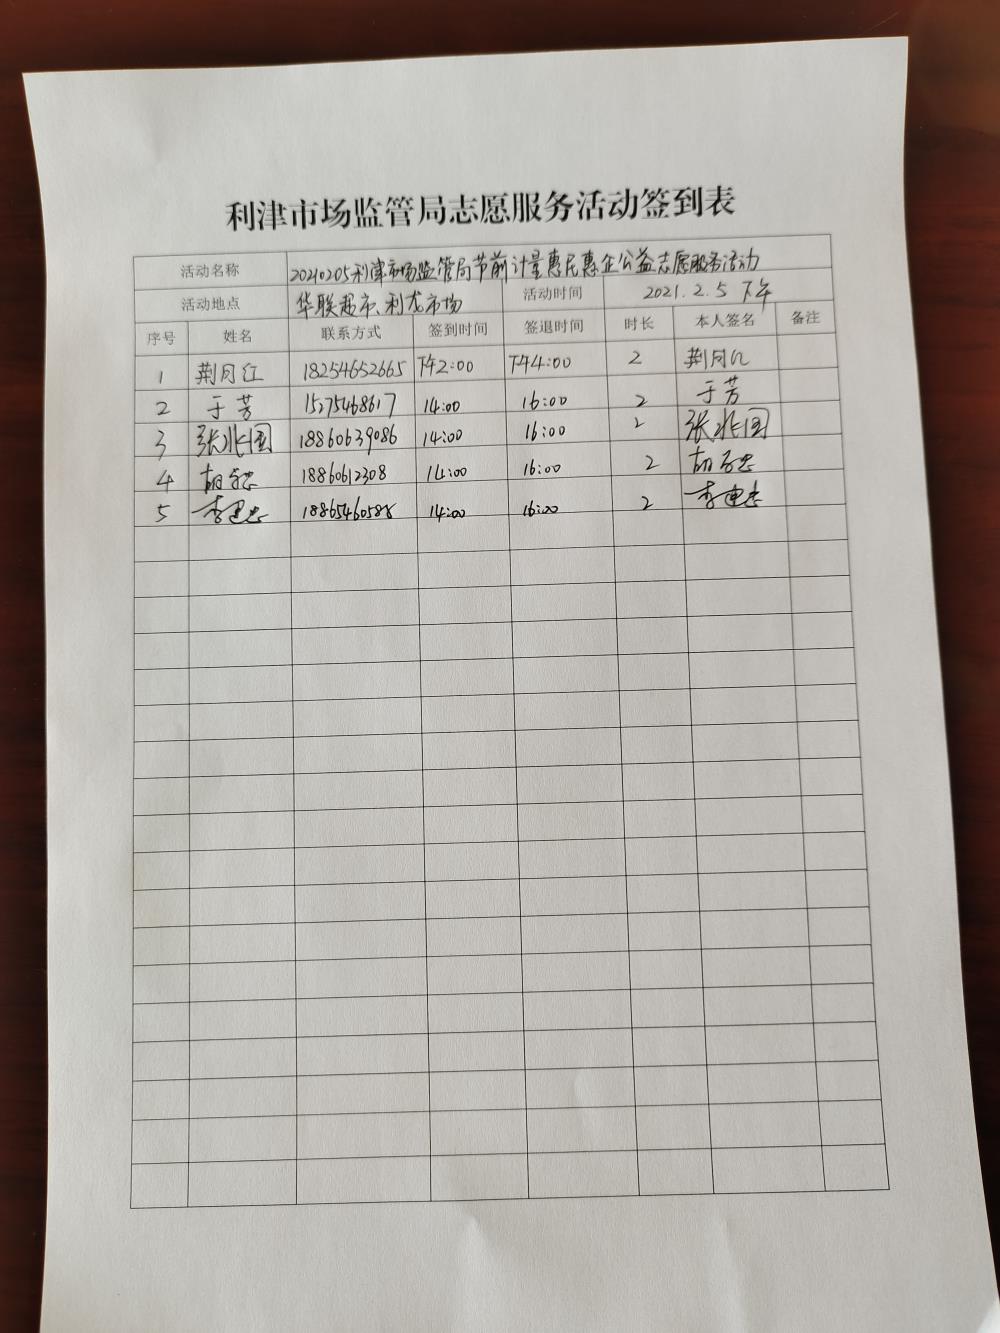 利津市场监管局志愿服务活动签到表
活动名称 20210205利津市场监管局节前计量惠民惠企公益志愿服务活动
活动地点 华联超市、利龙市场 活动时间 2021.2.5 下午
序号 姓名 联系方式 签到时间 签退时间 时长 本人签名 备注
1 荆月红 18254652665 下午2:00 下午4:00 2 荆月红
2 于芳 15275468617 14:00 16:00 2 于芳
3 张兆国 18860639086 14:00 16:00 2 张兆国
4 胡 18860612308 14:00 16:00 2 胡
5 李建忠 18865460588 14:00 16:00 2 李建忠